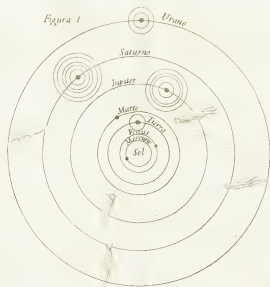 Figura 1
Urano
Saturno
Iupiter
Marte
Tierra
Venus
Mercurio
Sol